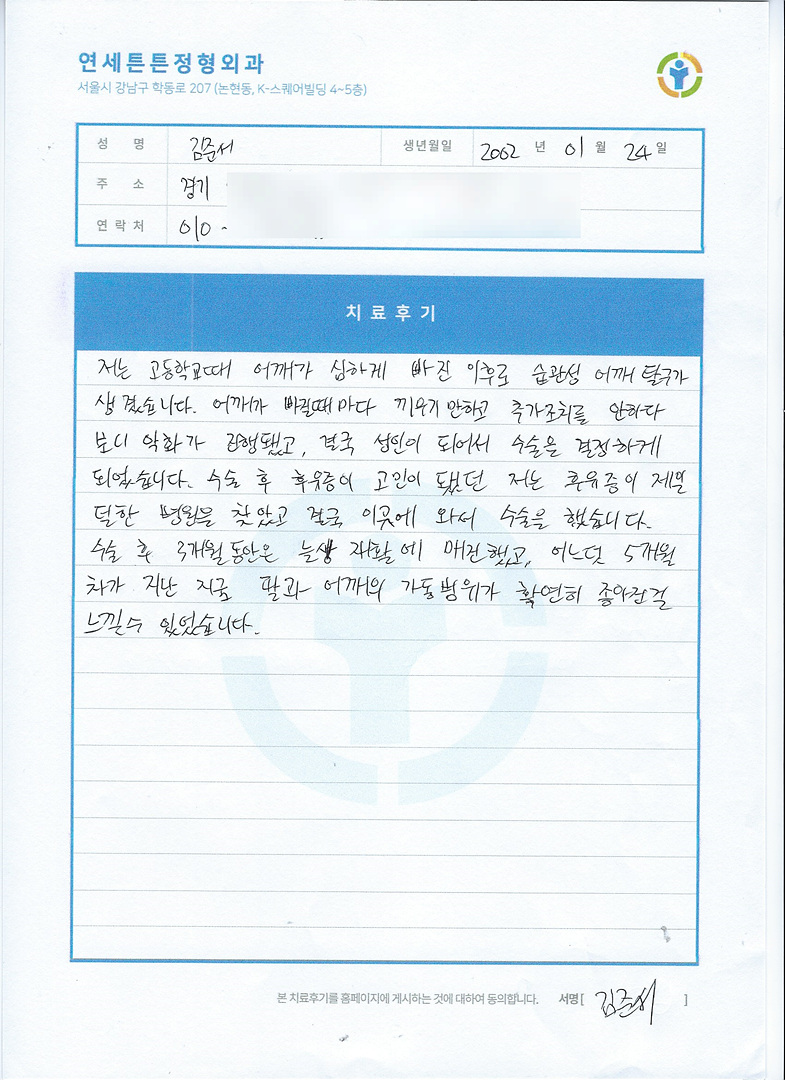 연세튼튼정형외과
서울시 강남구 학동로 207 (논현동, K-스퀘어빌딩 4~5층)
성 명 김준서 생년월일 2002 년 01 월 24 일
주 소 경기
연 락 처 010 -
치료후기
저는 고등학교때 어깨가 심하게 빠진 이후로 습관성 어깨 탈구가
생겼습니다. 어깨가 빠질때마다 끼우기만하고 추가조치를 안하다
보니 악화가 진행됐고, 결국 성인이 되어서 수술을 결정하게
되었습니다. 수술 후 후유증이 고민이 됐던 저는 후유증이 제일
덜한 병원을 찾았고 결국 이곳에 와서 수술을 했습니다.
수술 후 3개월동안은 늘 재활에 매진했고, 어느덧 5개월
차가 지난 지금 팔과 어깨의 가동범위가 확연히 좋아진걸
느낄수 있었습니다.
본 치료후기를 홈페이지에 게시하는 것에 대하여 동의합니다. 서명 [ 김준서 ]